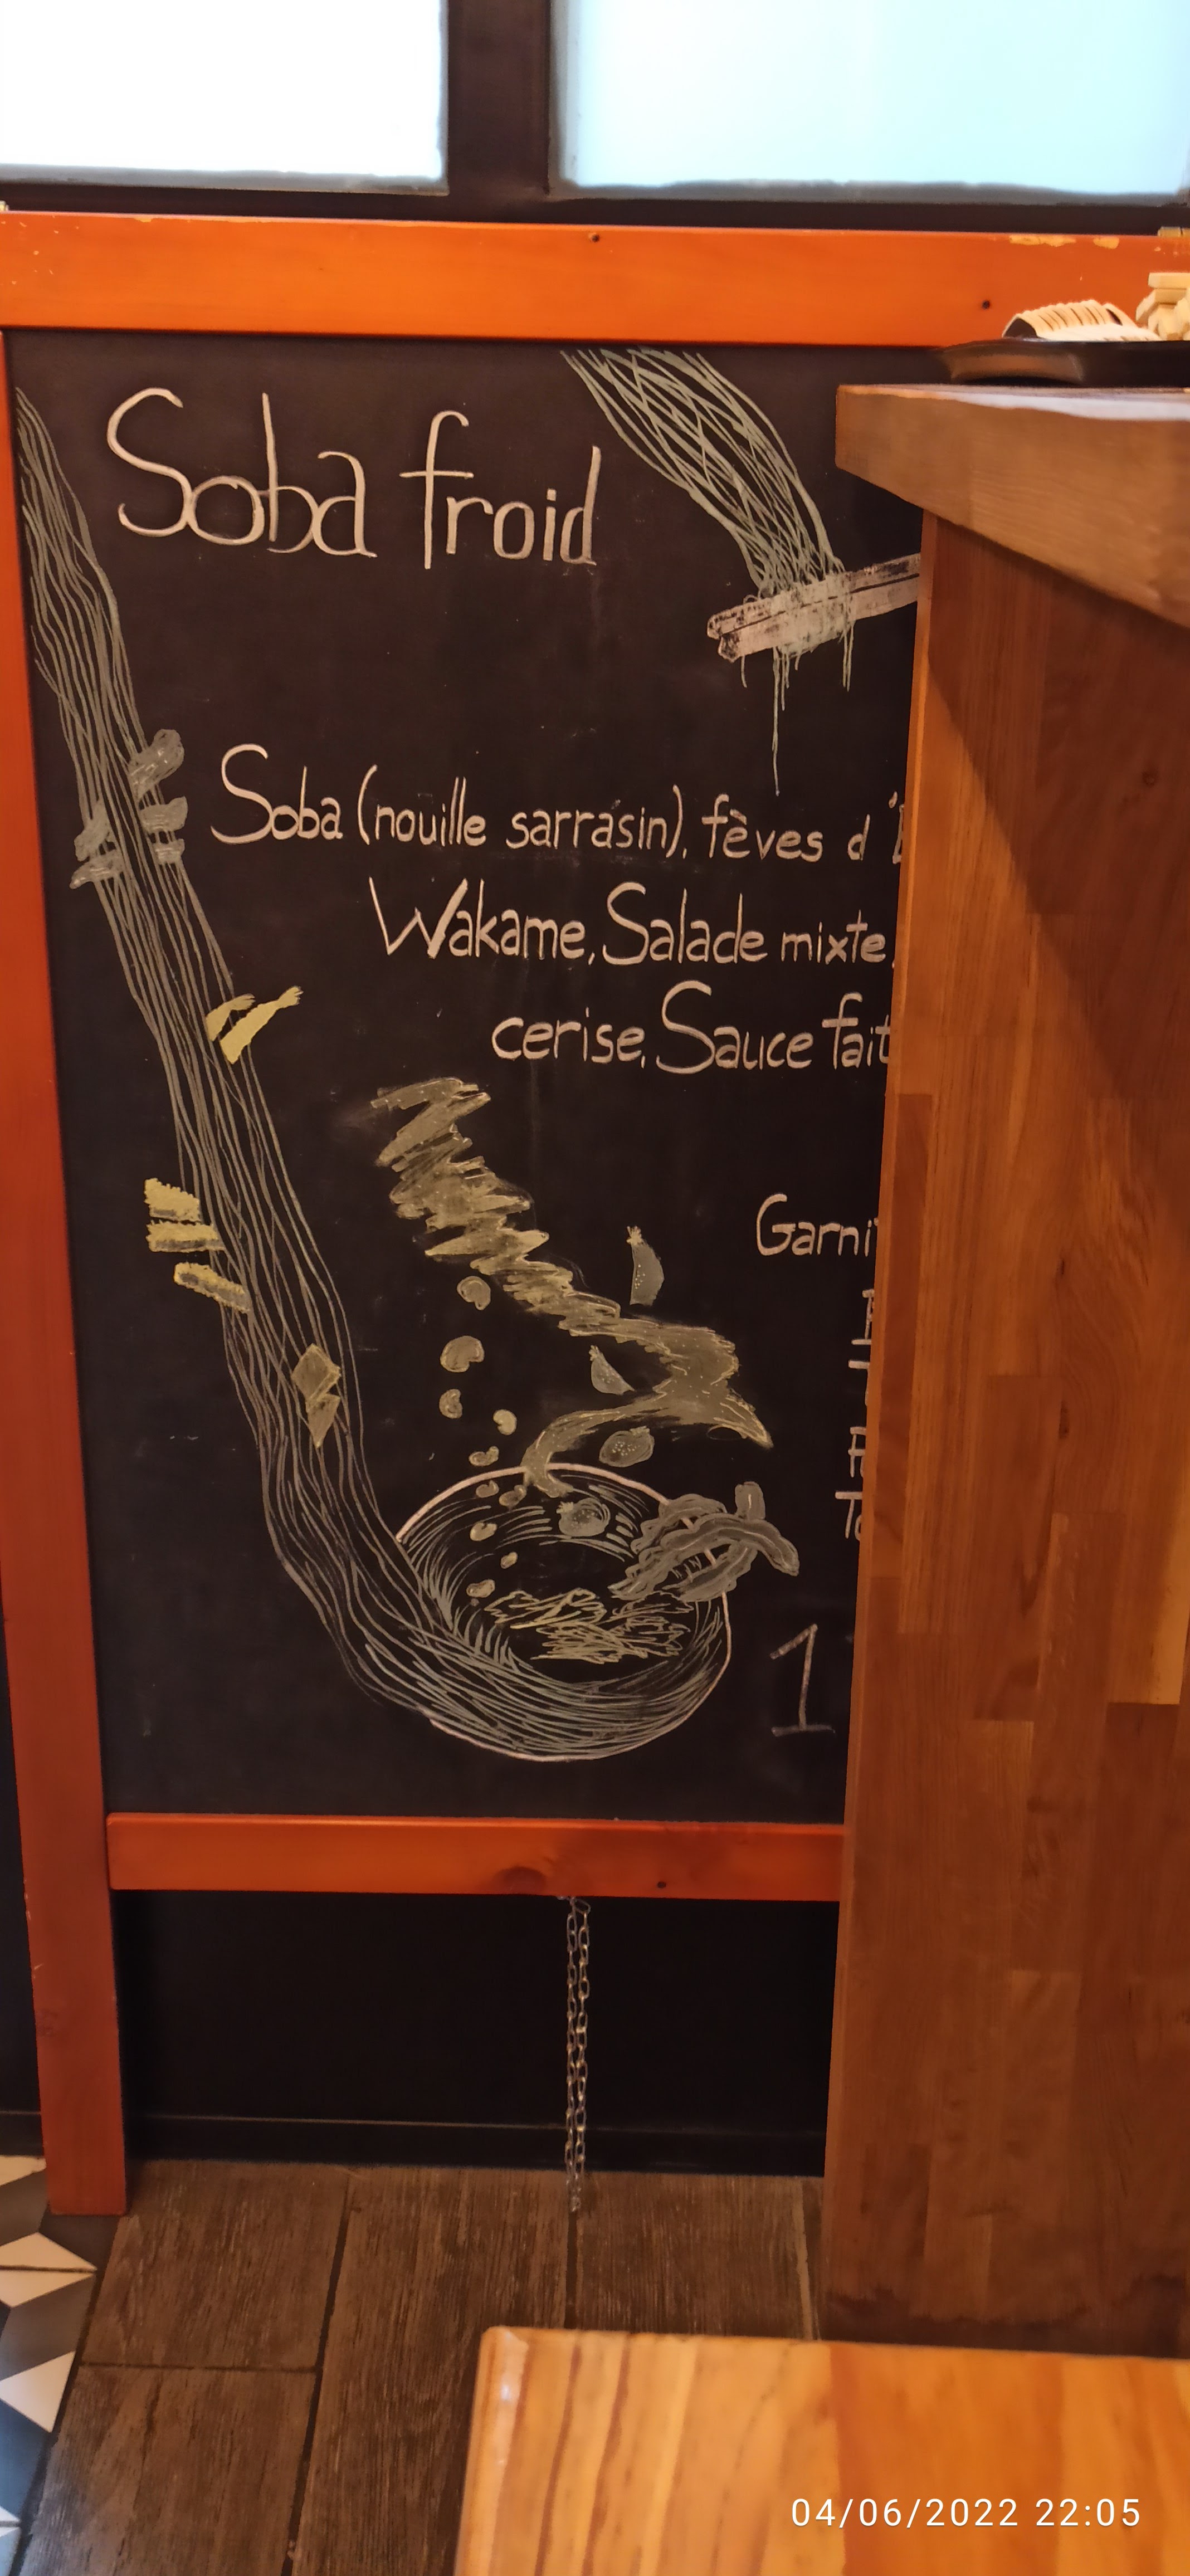 Soba froid
Soba (nouille sarrasin), fèves d'
Wakame, Salade mixte,
cerise, Sauce fait
Garni
1
04/06/2022 22:05